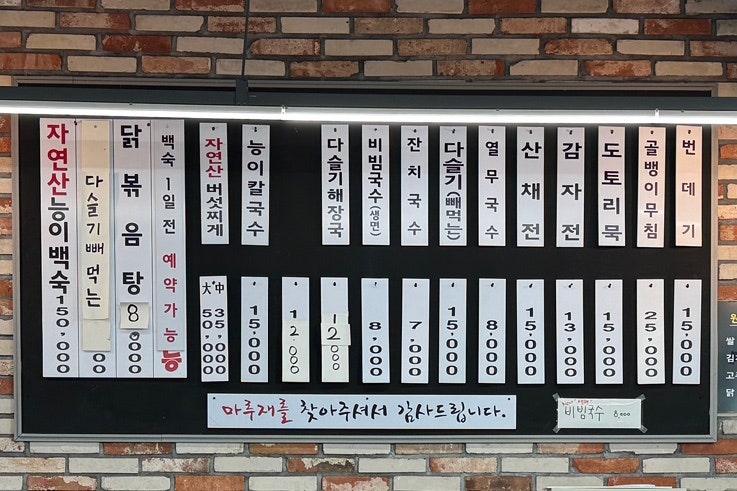 자연산능이백숙 150,000
다슬기빼먹는 00
닭볶음탕 8 0,000
백숙 1일전 예약가능 능
자연산 버섯찌게 大 50,000 中 35,000
능이칼국수 15,000
12,000
다슬기해장국 12,000
비빔국수(생면) 8,000
잔치국수 7,000
다슬기(빼먹는) 15,000
열무국수 8,000
산채전 15,000
감자전 13,000
도토리묵 10,000
골뱅이무침 25,000
번데기 15,000
마루재를 찾아주셔서 감사드립니다.
비빔국수 8,000
원
쌀
김
고
닭